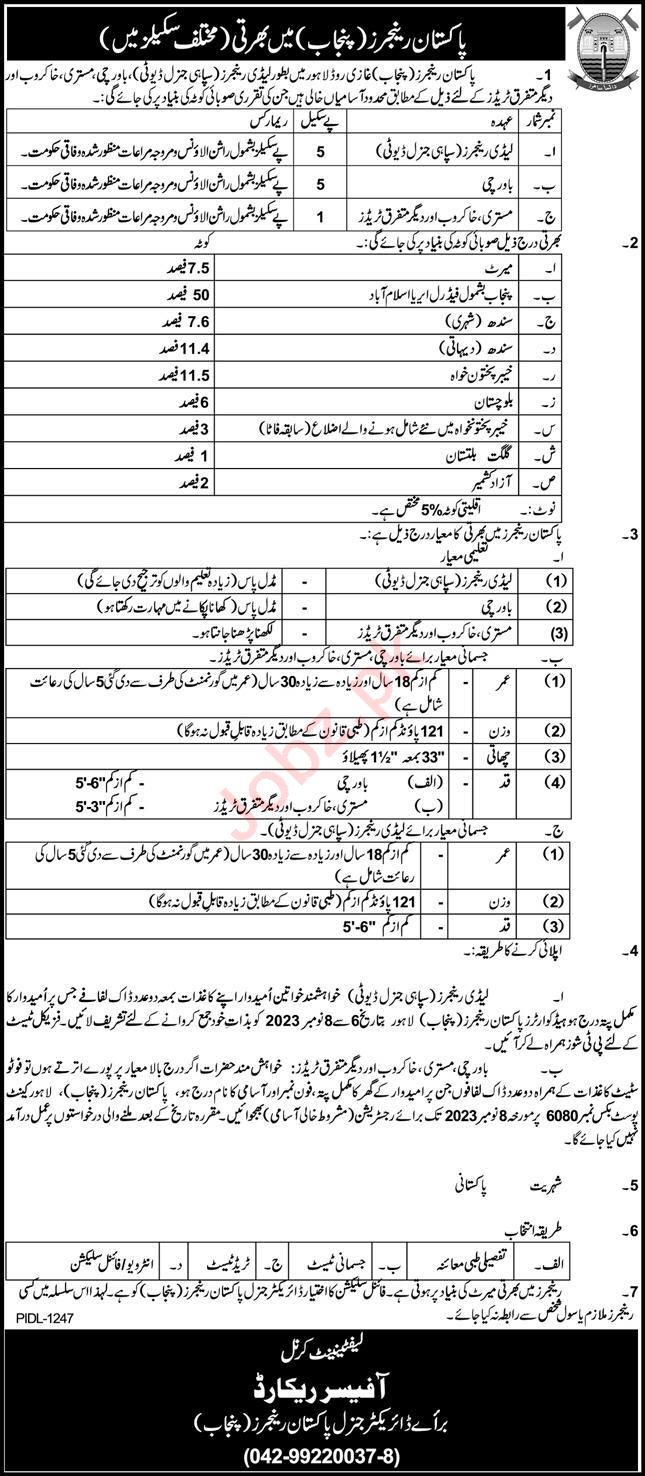 پاکستان رینجرز (پنجاب) میں بھرتی (مختلف سکیلز میں)
1۔ پاکستان رینجرز (پنجاب) غازی روڈ لاہور میں بطور لیڈی رینجرز (سپاہی جنرل ڈیوٹی)، باورچی، مستری، خاکروب اور
دیگر متفرق ٹریڈز کے لئے ذیل کے مطابق محدود آسامیاں خالی ہیں جن کی تقرری صوبائی کوٹہ کی بنیاد پر کی جائے گی:۔
نمبر شمار عہدہ پے سکیل ریمارکس
ا۔ لیڈی رینجرز (سپاہی جنرل ڈیوٹی) 5 پے سکیلز بشمول راشن الاؤنس و مروجہ مراعات منظور شدہ وفاقی حکومت۔
ب۔ باورچی 5 پے سکیلز بشمول راشن الاؤنس و مروجہ مراعات منظور شدہ وفاقی حکومت۔
ج۔ مستری، خاکروب اور دیگر متفرق ٹریڈز 1 پے سکیلز بشمول راشن الاؤنس و مروجہ مراعات منظور شدہ وفاقی حکومت۔
2۔ بھرتی درج ذیل صوبائی کوٹہ کی بنیاد پر کی جائے گی:۔ کوٹہ
ا۔ میرٹ 7.5 فیصد
ب۔ پنجاب بشمول فیڈرل ایریا اسلام آباد 50 فیصد
ج۔ سندھ (شہری) 7.6 فیصد
د۔ سندھ (دیہاتی) 11.4 فصد
ر۔ خیبر پختون خواہ 11.5 فصد
ز۔ بلوچستان 6 فیصد
س۔ خیبر پختونخواہ میں نئے شامل ہونے والے اضلاع (سابقہ فاٹا) 3 فیصد
ش۔ گلگت بلتستان 1 فیصد
ص۔ آزاد کشمیر 2 فیصد
نوٹ:۔ اقلیتی کوٹہ 5% مختص ہے۔
3۔ پاکستان رینجرز میں بھرتی کا معیار درج ذیل ہے:۔
ا۔ تعلیمی معیار
(1) لیڈی رینجرز (سپاہی جنرل ڈیوٹی) - مڈل پاس (زیادہ تعلیم والوں کو ترجیح دی جائے گی)
(2) باورچی - مڈل پاس (کھانا پکانے میں مہارت رکھتا ہو)
(3) مستری، خاکروب اور دیگر متفرق ٹریڈز - لکھنا پڑھنا جانتا ہو۔
ب۔ جسمانی معیار برائے باورچی، مستری، خاکروب اور دیگر متفرق ٹریڈز۔
(1) عمر - کم از کم 18 سال اور زیادہ سے زیادہ 30 سال (عمر میں گورنمنٹ کی طرف سے دی گئی 5 سال کی رعائت
شامل ہے)
(2) وزن - 121 پاؤنڈ کم از کم (طبی قانون کے مطابق زیادہ قابل قبول نہ ہوگا)
(3) چھاتی - 33" بمعہ 1½" پھیلاؤ
(4) قد - (الف) باورچی - کم از کم 5'-6"
(ب) مستری، خاکروب اور دیگر متفرق ٹریڈز - کم از کم 5'-3"
ج۔ جسمانی معیار برائے لیڈی رینجرز (سپاہی جنرل ڈیوٹی)۔
(1) عمر - کم از کم 18 سال اور زیادہ سے زیادہ 30 سال (عمر میں گورنمنٹ کی طرف سے دی گئی 5 سال کی
رعائت شامل ہے)
(2) وزن - 121 پاؤنڈ کم از کم (طبی قانون کے مطابق زیادہ قابل قبول نہ ہوگا)
(3) قد - کم از کم 5'-6"
4۔ اپلائی کرنے کا طریقہ:۔
ا۔ لیڈی رینجرز (سپاہی جنرل ڈیوٹی) خواہشمند خواتین اُمیدوار اپنے کاغذات بمعہ دو عدد ڈاک لفافے جس پر اُمیدوار کا
مکمل پتہ درج ہو ہیڈ کوارٹرز پاکستان رینجرز (پنجاب) لاہور بتاریخ 6 سے 8 نومبر 2023 کو بذات خود جمع کروانے کے لئے تشریف لائیں۔ فزیکل ٹیسٹ
کے لئے پی ٹی شوز ہمراہ لے کر آئیں۔
ب۔ باورچی، مستری، خاکروب اور دیگر متفرق ٹریڈز: خواہش مند حضرات اگر درج بالا معیار پر پورے اترتے ہوں تو فوٹو
سٹیٹ کاغذات کے ہمراہ دو عدد ڈاک لفافوں جن پر امیدوار کے گھر کا مکمل پتہ، فون نمبر اور آسامی کا نام درج ہو، پاکستان رینجرز (پنجاب)، لاہور کینٹ
پوسٹ بکس نمبر 6080 پر مورخہ 8 نومبر 2023 تک برائے رجسٹریشن (مشروط خالی آسامی) بھجوائیں۔ مقررہ تاریخ کے بعد ملنے والی درخواستوں پر عمل درآمد
نہیں کیا جائے گا۔
5۔ شہریت پاکستانی
6۔ طریقہ انتخاب
الف۔ تفصیلی طبی معائنہ ب۔ جسمانی ٹیسٹ ج۔ ٹریڈ ٹیسٹ د۔ انٹرویو/فائنل سلیکشن
7۔ رینجرز میں بھرتی میرٹ کی بنیاد پر ہوتی ہے۔ فائنل سلیکشن کا اختیار ڈائریکٹر جنرل پاکستان رینجرز (پنجاب) کو ہے۔ لہذا اس سلسلہ میں کسی
رینجرز ملازم یا سول شخص سے رابطہ نہ کیا جائے۔
PIDL-1247
لیفٹیننٹ کرنل
آفیسر ریکارڈ
برائے ڈائریکٹر جنرل پاکستان رینجرز (پنجاب)
(042-99220037-8)
Jobz.pk